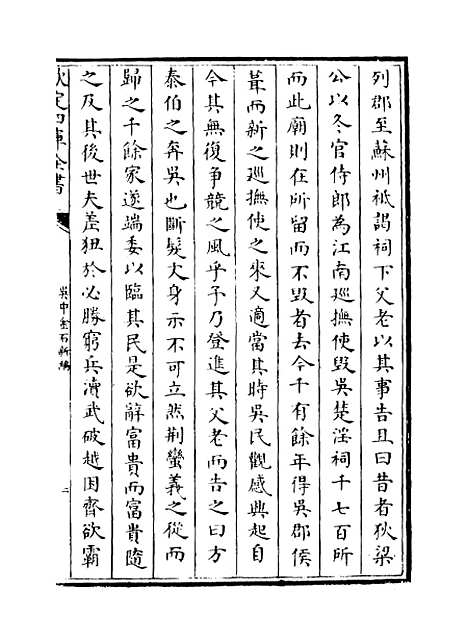 列郡至蘇州袛謁祠下父老以其事告且曰昔者狄梁
公以冬官侍郎為江南廵撫使毀吳楚淫祠千七百所
而此廟則在所留而不毀者去今千有餘年得吳郡侯
葺而新之廵撫使之來又適當其時吳民觀感興起自
今其無復爭競之風乎予乃登進其父老而告之曰方
泰伯之奔吳也斷髮文身示不可立然荆蠻義之從而
歸之千餘家遂端委以臨其民是欲辭富貴而富貴隨
之及其後世夫差狃於必勝窮兵凟武破越困齊欲霸
欽定四庫全書
吳中金石新編
二